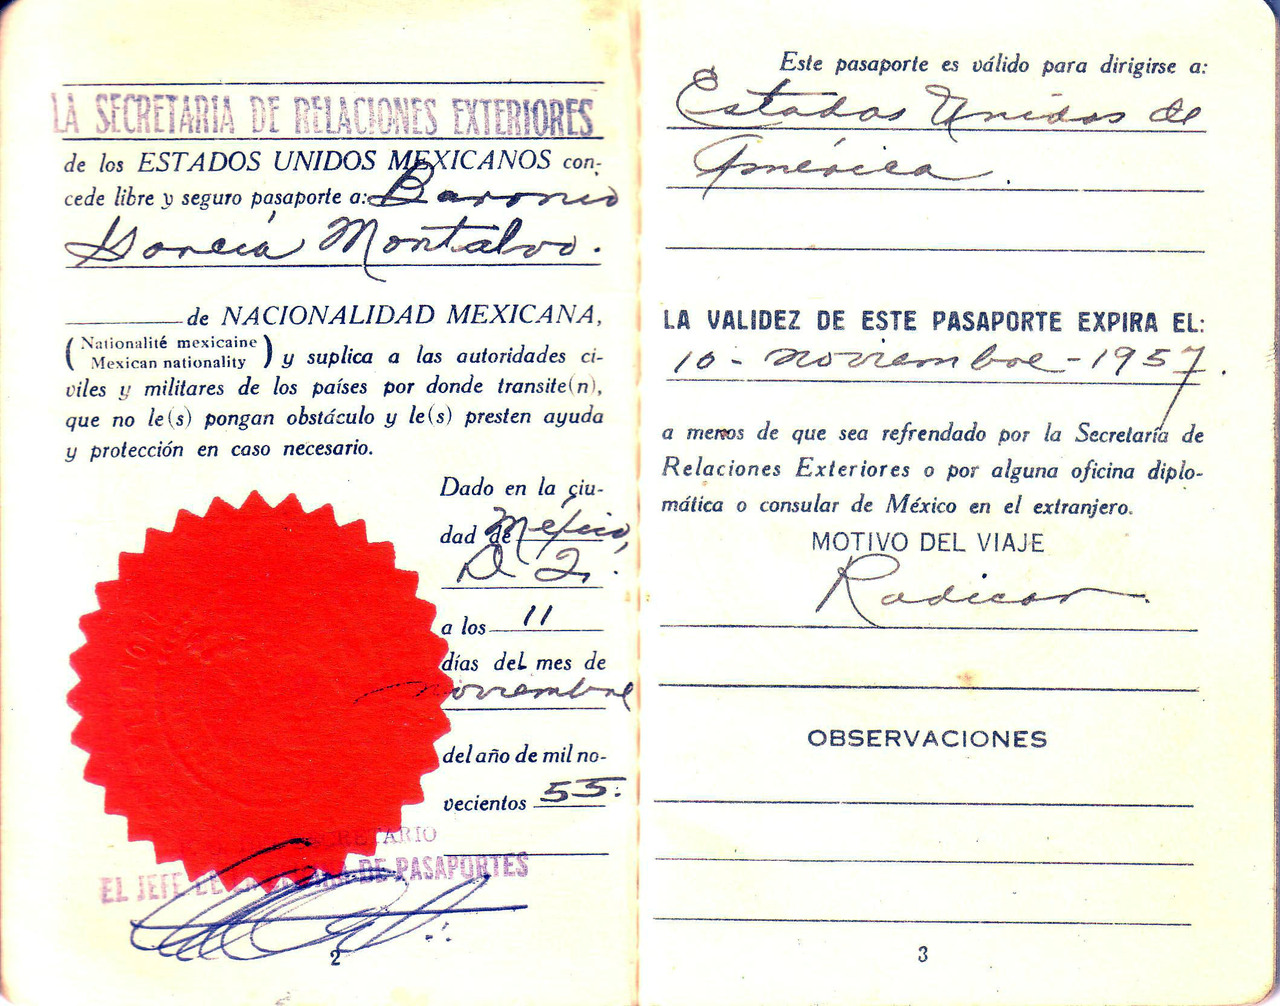 LA SECRETARIA DE RELACIONES EXTERIORES
de los ESTADOS UNIDOS MEXICANOS con-
cede libre y seguro pasaporte a: Baronio
García Montalvo.
de NACIONALIDAD MEXICANA,
(Nationalité mexicaine
Mexican nationality) y suplica a las autoridades ci-
viles y militares de los países por donde transite(n),
que no le(s) pongan obstáculo y le(s) presten ayuda
y protección en caso necesario.
Dado en la ciu-
dad de México,
D. F.
a los 11
días del mes de
noviembre
del año de mil no-
vecientos 55.
EL JEFE DE LA OFICINA DE PASAPORTES
2
Este pasaporte es válido para dirigirse a:
Estados Unidos de
América.
LA VALIDEZ DE ESTE PASAPORTE EXPIRA EL:
10 - noviembre - 1957.
a menos de que sea refrendado por la Secretaría de
Relaciones Exteriores o por alguna oficina diplo-
mática o consular de México en el extranjero.
MOTIVO DEL VIAJE
Radicar.
OBSERVACIONES
3